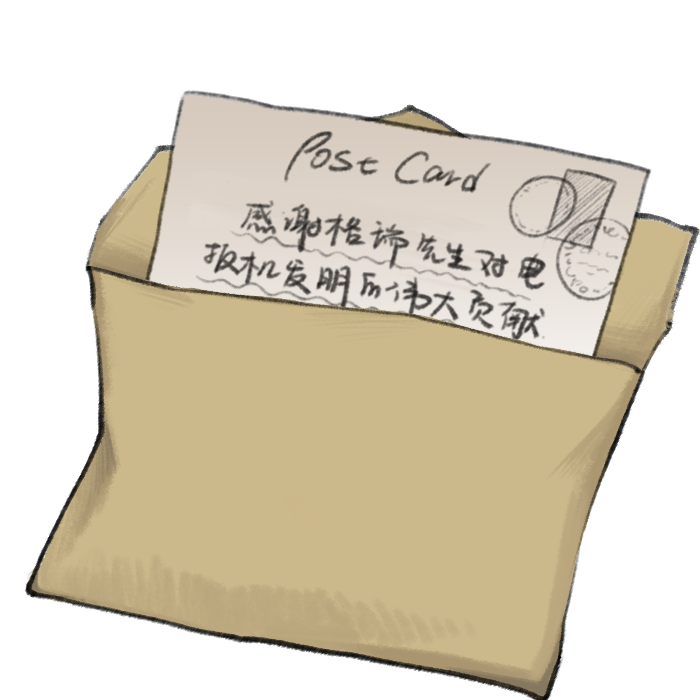 Post Card
感谢格谛先生对电
报机发明所伟大贡献